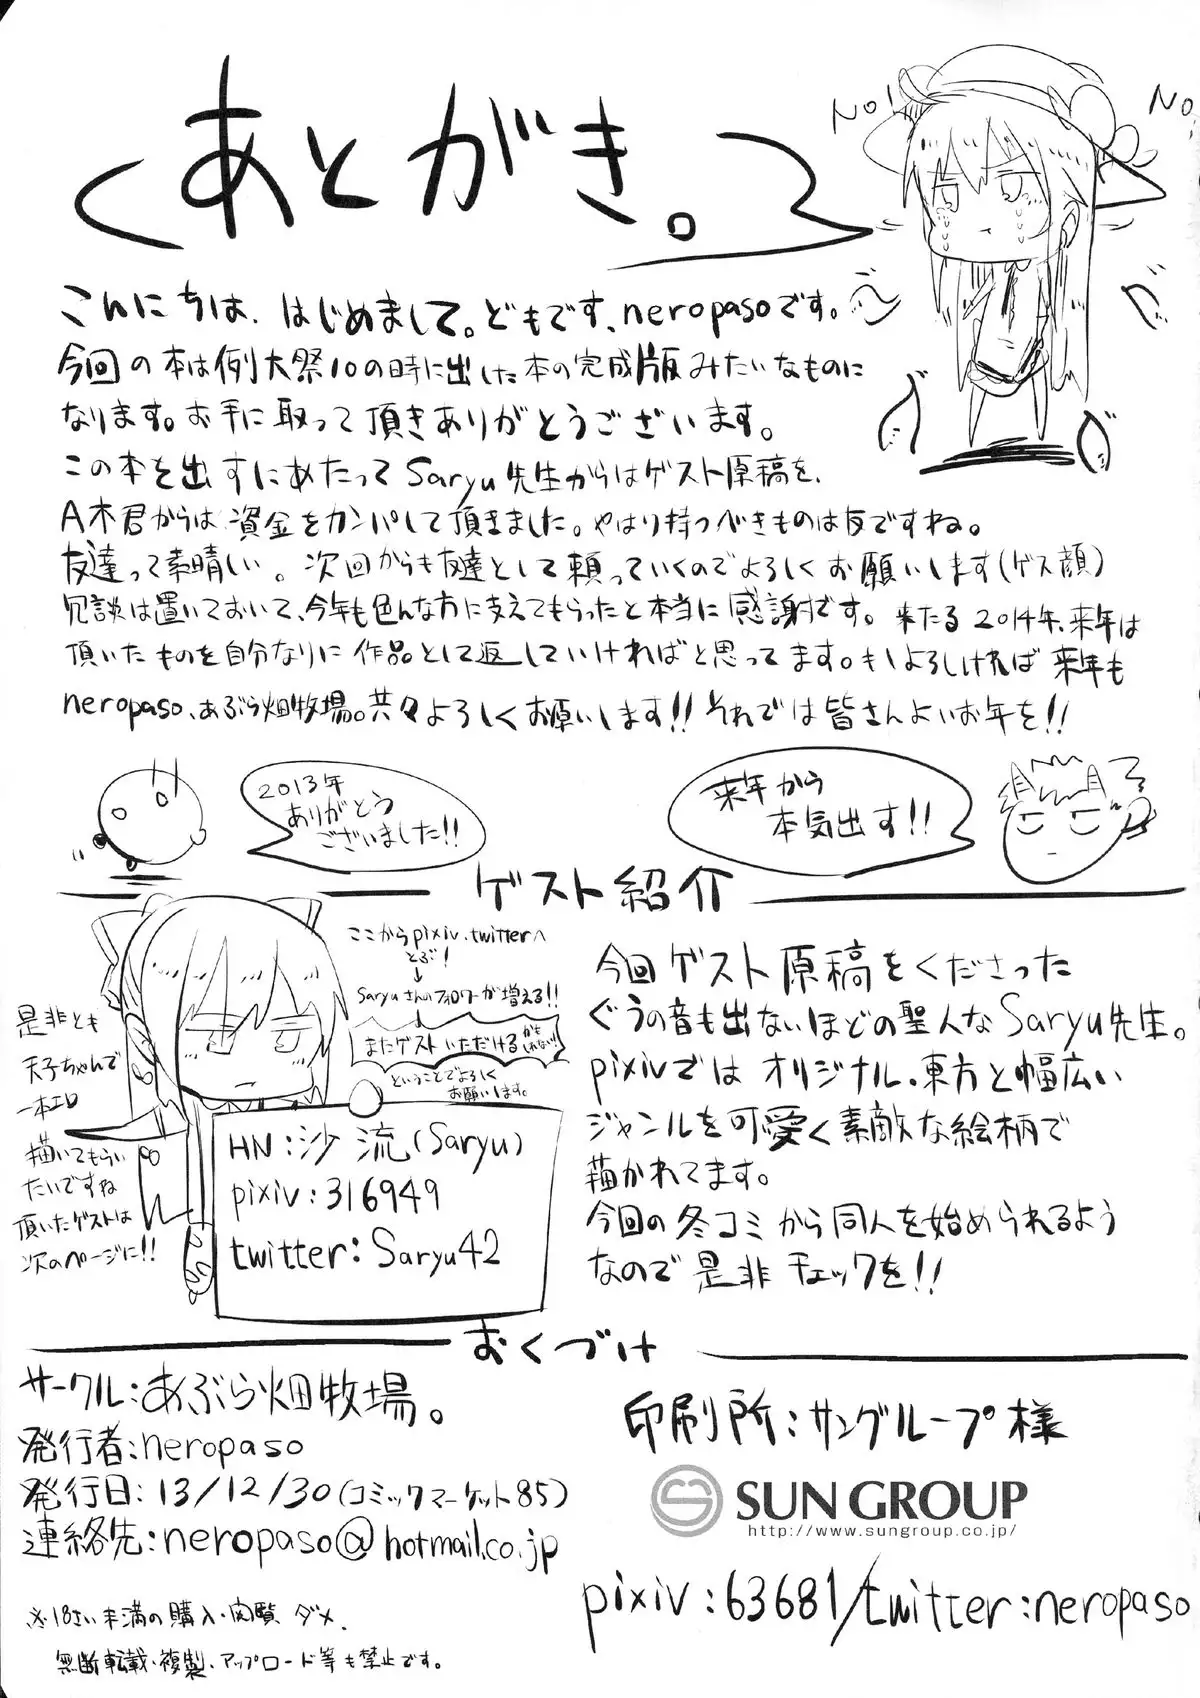 あとがき。
No!
No!
こんにちは、はじめまして。どもです、neropasoです。
今回の本は例大祭10の時に出した本の完成版みたいなものに
なります。お手に取って頂きありがとうございます。
この本を出すにあたってSaryu先生からはゲスト原稿を、
A木君からは資金をカンパして頂きました。やはり持つべきものは友ですね。
友達って素晴しい。次回からも友達として頼っていくのでよろしくお願いします(ゲス顔)
冗談は置いておいて、今年も色んな方に支えてもらったと本当に感謝です。来たる2014年、来年は
頂いたものを自分なりに作品として返していければと思ってます。もしよろしければ来年も
neropaso、あぶら畑牧場。共々よろしくお願いします!!それでは皆さんよいお年を!!
2013年
ありがとう
ございました!!
来年から
本気出す!!
ゲスト紹介
ここからpixiv、twitterへ
とぶ!
↓
Saryuさんのフォロワーが増える!!
↓
またゲストいただけるかも
しれない!
ということでよろしく
お願いします。
是非とも
天子ちゃんで
一本エロ
描いてもらい
たいですね
頂いたゲストは
次のページに!!
HN:沙流(Saryu)
pixiv:316949
twitter:Saryu42
今回ゲスト原稿をくださった
ぐうの音も出ないほどの聖人なSaryu先生。
pixivではオリジナル、東方と幅広い
ジャンルを可愛く素敵な絵柄で
描かれてます。
今回の冬コミから同人を始められるよう
なので是非チェックを!!
おくづけ
サークル:あぶら畑牧場。
発行者:neropaso
発行日:13/12/30(コミックマーケット85)
連絡先:neropaso@hotmail.co.jp
※18さい未満の購入・閲覧ダメ、
無断転載、複製、アップロード等も禁止です。
印刷所:サングループ様
SUN GROUP
http://www.sungroup.co.jp/
pixiv:63681/twitter:neropaso